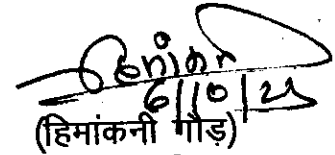 6/10/25
(हिमांकनी गौड़)